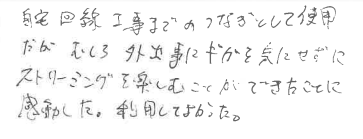 自宅回線工事までのつなぎとして使用
だが むしろ 外出事にギガを気にせずに
ストリーミングを楽しむことができたことに
感動した。利用してよかった。